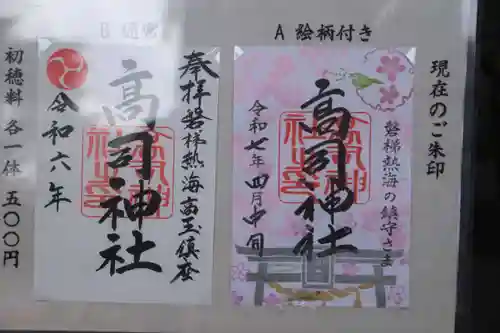 現在のご朱印
A 絵柄付き
磐梯熱海の鎮守さま
高司神社
令和七年 四月中旬
B 通常
奉拝 磐梯熱海 高玉鎮座
高司神社
令和六年
初穂料 各一体 五〇〇円